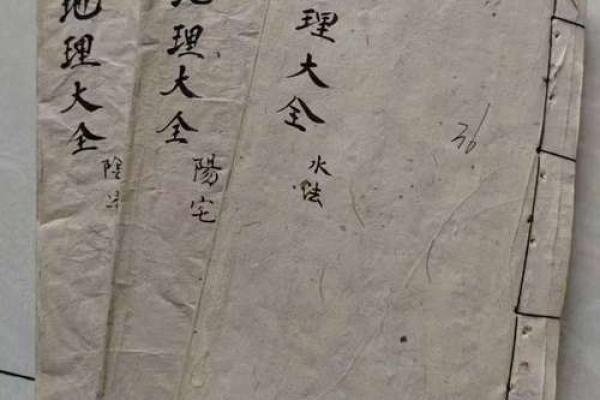 36
理大全
水法
地理大全
陽宅
地理大全
陰